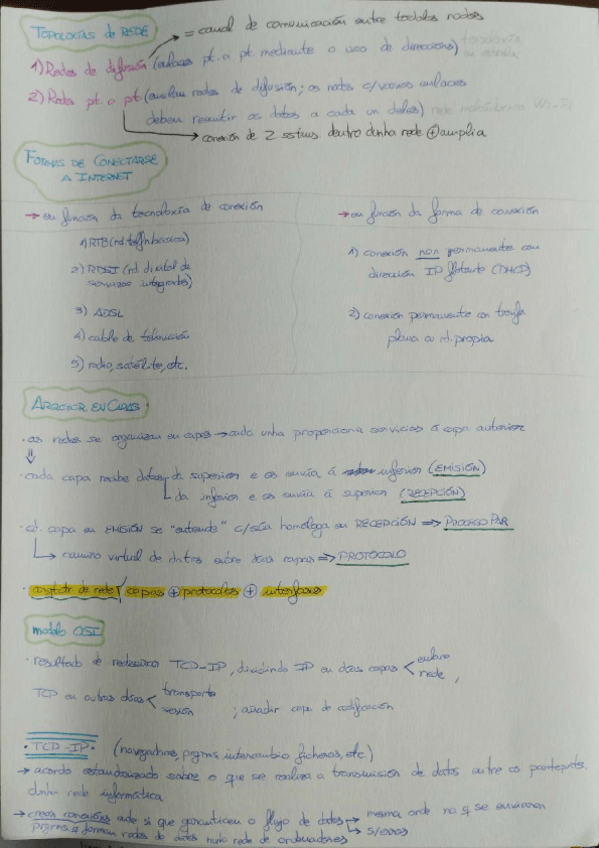 TOPOLOGÍAS DE REDE
= canal de comunicación entre todolos nodos
1) Redes de difusión (enlaces pt. a pt. mediante o uso de direccions)
2) Redes pt. a pt (auxilian redes de difusión; os nodos c/varios enlaces
deben reenviar os datos a cada un deles)
conexión de 2 sistemas dentro dunha rede + amplia
FORMAS DE CONECTARSE
A INTERNET
→ en función da tecnoloxía de conexión
1) RTB (rd telefn básica)
2) RDSI (rd dixital de
servizos integrados)
3) ADSL
4) cable de televisión
5) radio, satélite, etc.
→ en función da forma de conexión
1) conexión non permanente con
dirección IP flotante (DHCP)
2) conexión permanente con tarifa
plana ou rd. propia
EN CAPAS
· as redes se organizan en capas → cada unha proporciona servicios á capa anterior
⇓
· cada capa recibe datos da superior e os envía á inferior (EMISIÓN)
da inferior e os envía á superior (RECEPCIÓN)
· cd. capa en EMISIÓN se "entende" c/súa homóloga en RECEPCIÓN ⇒ PROCESO PAR
camiño virtual de datos entre dúas capas ⇒ PROTOCOLO
· de rede capas + protocolos + interfaces
modelo OSI
· resultado de TCP-IP, dividindo IP en dúas capas < enlace
rede,
TCP en outras dúas < transporte
sesión ; añadir capa de codificación
· TCP-IP · (navegadores, prgrms, intercambio ficheros, etc.)
→ acordo estandarizado sobre o que se realiza a transmisión de datos entre os partcpnts.
dunha rede informática
→ crear conexións entre si que garanticen o flujo de datos → mesma orde na q se enviaron
→ s/erros
prgrms q forman redes de datos nunha rede de ordenadores